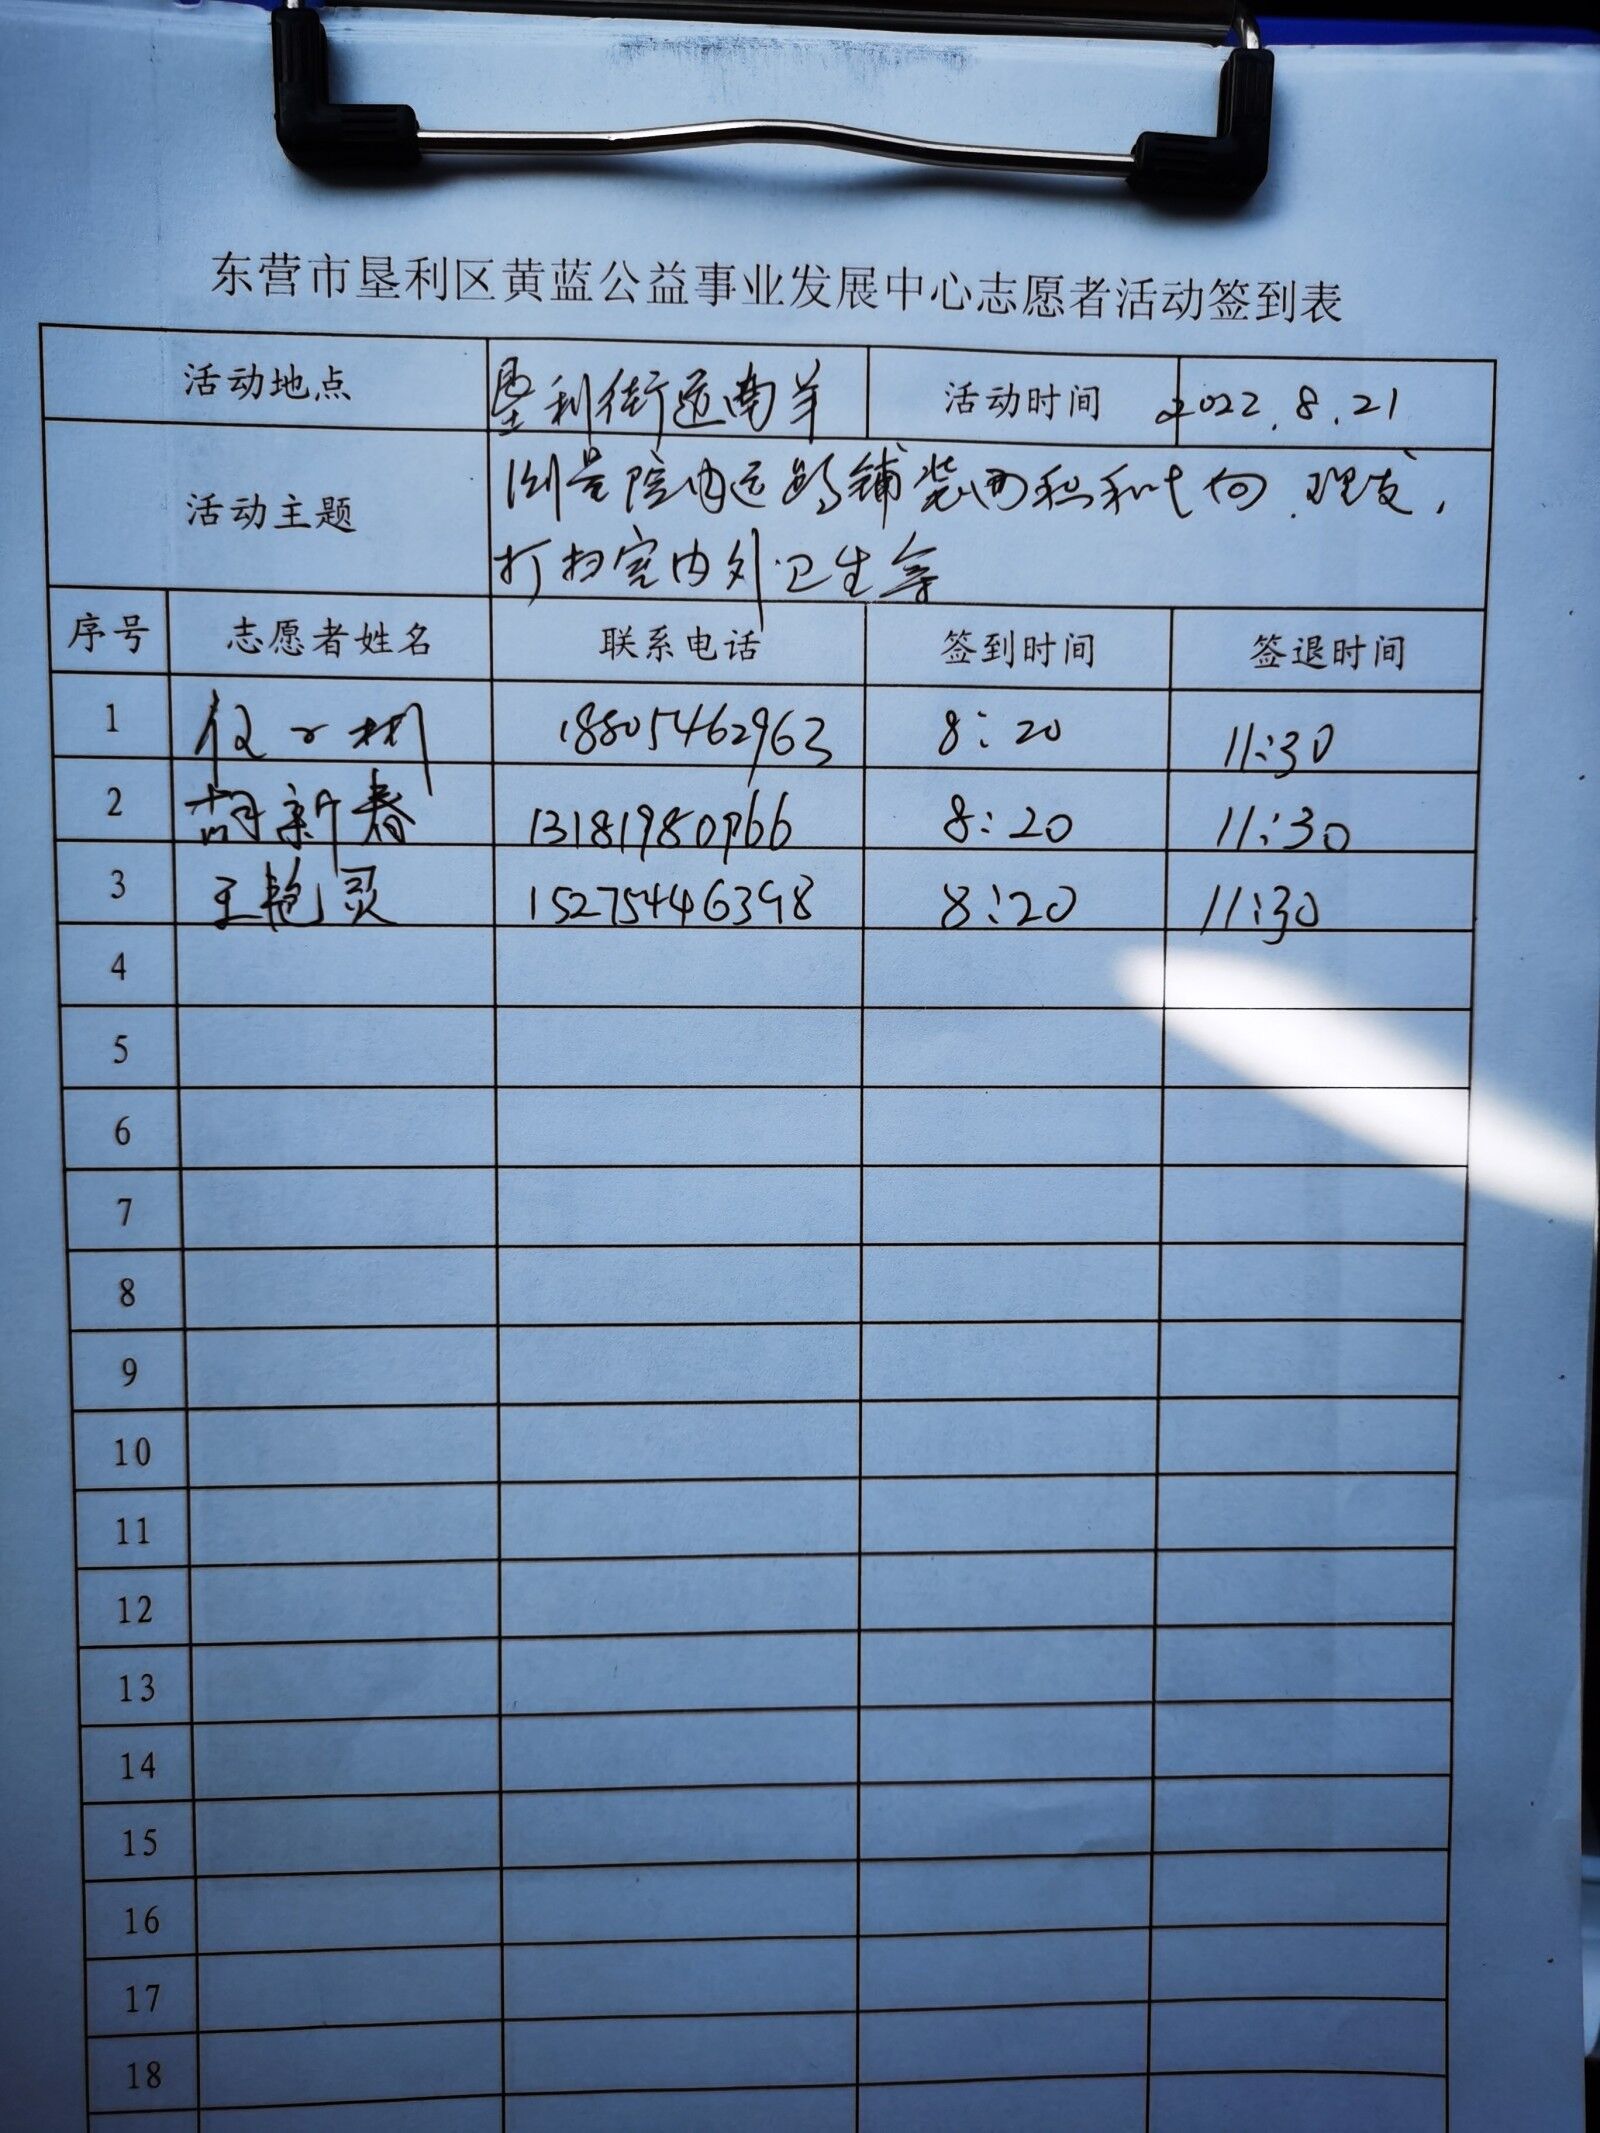 东营市垦利区黄蓝公益事业发展中心志愿者活动签到表
活动地点 垦利街道南羊 活动时间 2022.8.21
活动主题 测量院内道路铺装面积和 理发，
打扫室内外卫生等
序号 志愿者姓名 联系电话 签到时间 签退时间
1 18805462963 8:20 11:30
2 胡新春 13181980966 8:20 11:30
3 王艳灵 15275446398 8:20 11:30
4
5
6
7
8
9
10
11
12
13
14
15
16
17
18